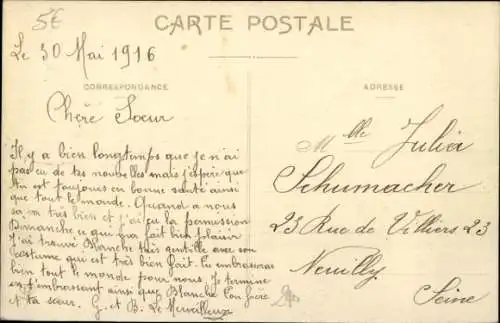 5€
CARTE POSTALE
Le 30 Mai 1916
CORRESPONDANCE
ADRESSE
Chère Sœur
Il y a bien longtemps que je n'ai
pas eu de tes nouvelles mais j'espère que
tu est toujours en bonne santé ainsi
que tout le monde. Quand a nous
sa va très bien et j'ai eu la permission
Dimanche ce qui m'a fait bien plaisir
J'ai trouvé Blanche très gentille avec son
costume qui est très bien fait. Tu embrasseras
bien tout le monde pour nous. Je termine
en t'embrassant ainsi que Blanche Ton frère
et ta sœur. G. et B. Le Merveilleux
Mlle Julia
Schumacher
23 Rue de Villiers 23
Neuilly
Seine